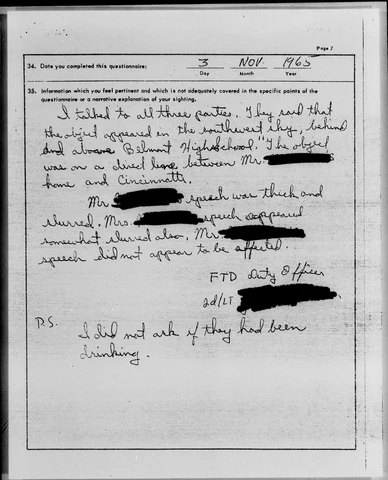 Page 7
34. Date you completed this questionnaire: 3 NOV 1965
Day Month Year
35. Information which you feel pertinent and which is not adequately covered in the specific points of the
questionnaire or a narrative explanation of your sighting.
I talked to all three parties. They said that
the object appeared in the southwest sky, behind
and above Belmont Highschool. "The object
was on a direct line between Mr.
home and Cincinnatti.
Mr. speech was thick and
slurred. Mrs speech appeared
somewhat slurred also. Mr
speech did not appear to be affected.
FTD Duty Officer
2d/LT
P.S. I did not ask if they had been
drinking.